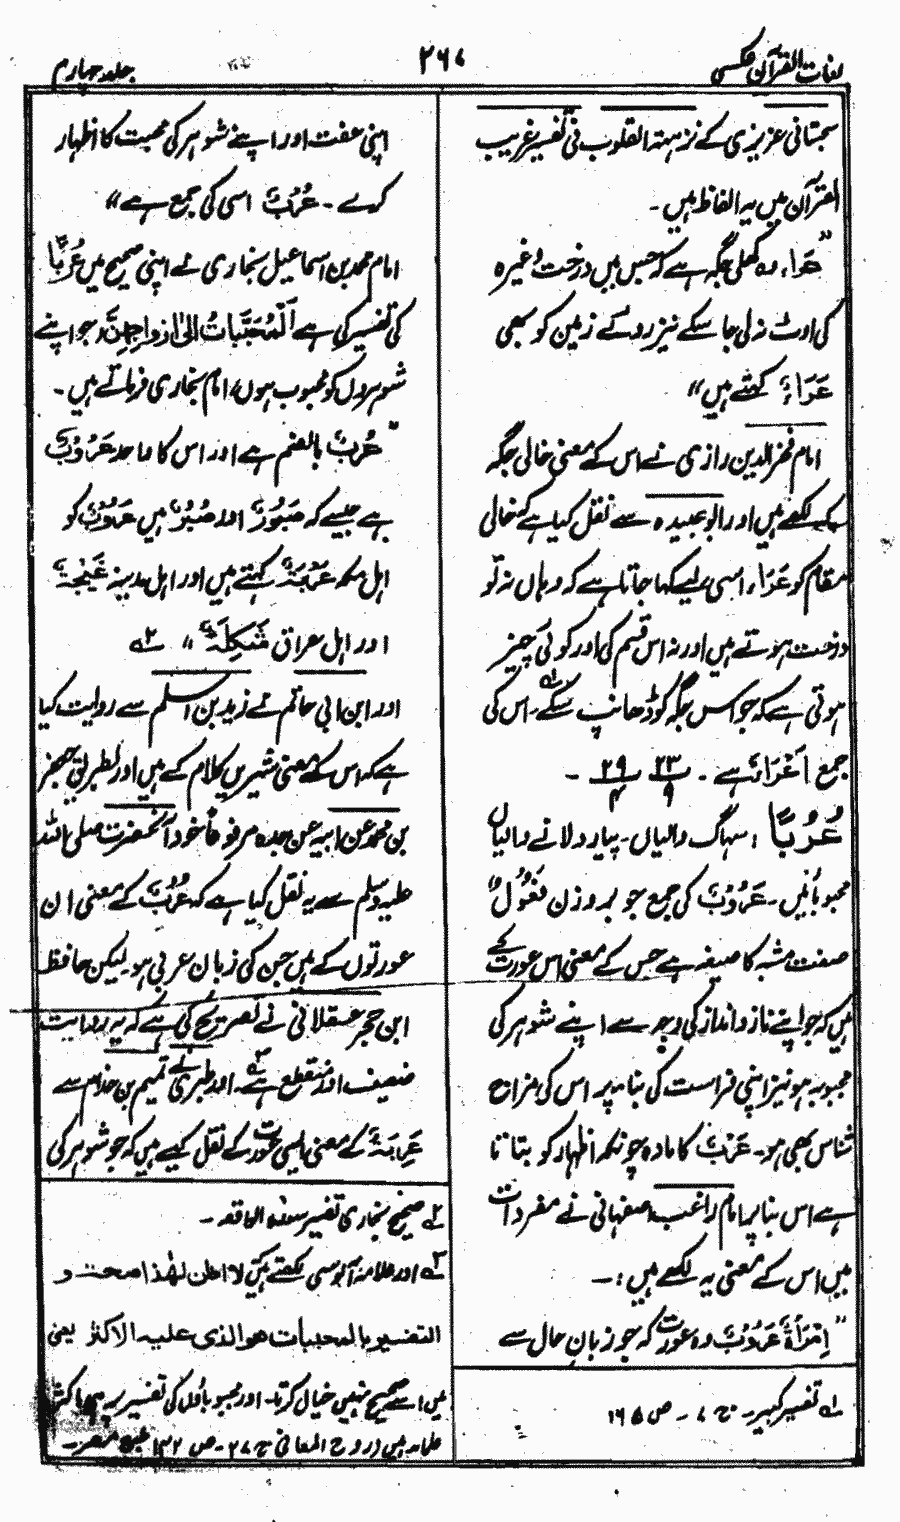 لغات القرآن عکسی
۲۶۷
جلد چہارم
سجستانی عزیزی کے نزہتہ القلوب فی تفسیر غریب
القرآن میں یہ الفاظ ہیں۔
"عَرَاء، وہ کھلی جگہ ہے کہ جس میں درخت وغیرہ
کی اوٹ نہ لی جا سکے نیز روئے زمین کو بھی
عَرَاءٌ کہتے ہیں"
امام فخر الدین رازی نے اس کے معنی خالی جگہ
کے لکھے ہیں اور ابو عبیدہ سے نقل کیا ہے کہ خالی
مقام کو عَرَاء اسی لیے کہا جاتا ہے کہ وہاں نہ تو
درخت ہوتے ہیں اور نہ اس قسم کی اور کوئی چیز
ہوتی ہے کہ جو اس جگہ کو ڈھانپ سکے۔ اس کی
جمع اَعْرَاءٌ ہے۔ ۲۳/۹ ۲۹/۴ -
عُرُبًا : سہاگ والیاں۔ پیار دلانے والیاں
محبوبائیں۔ عَرُوْبٌ کی جمع جو بروزن فَعُوْلٌ
صفت مشبہ کا صیغہ ہے جس کے معنی اس عورت کے
ہیں کہ جو اپنے ناز و انداز کی وجہ سے اپنے شوہر کی
محبوبہ ہو نیز اپنی فراست کی بنا پر اس کی مزاج
شناس بھی ہو۔ عَرَبٌ کا مادہ چونکہ اظہار کو بتاتا
ہے اس بنا پر امام راغب اصفہانی نے مفردات
میں اس کے معنی یہ لکھے ہیں :-
"اِمْرَأَةٌ عَرُوْبٌ وہ عورت کہ جو زبان حال سے
لہ تفسیر کبیر۔ ج ۷ - ص ۱۶۵
اپنی عفت اور اپنے شوہر کی محبت کا اظہار
کرے۔ عُرُبٌ اسی کی جمع ہے"
امام محمد بن اسماعیل بخاری نے اپنی صحیح میں عُرُبًا
کی تفسیر کی ہے اَلْمُحَبَّبَاتُ اِلٰی اَزْوَاجِہِنَّ (جو اپنے
شوہروں کو محبوب ہوں) امام بخاری فرماتے ہیں۔
"عُرُبٌ بالضم ہے اور اس کا واحد عَرُوْبٌ
ہے جیسے کہ صَبُوْرٌ اور صُبُرٌ ہیں عَرُوْبٌ کو
اہل مکہ عَرِبَةٌ کہتے ہیں اور اہل مدینہ غَنِجَةٌ
اور اہل عراق شَکِلَةٌ" ۲ہ
اور ابن ابی حاتم نے زید بن اسلم سے روایت کیا
ہے کہ اس کے معنی شیریں کلام کے ہیں اور بطریق جعفر
بن محمد عن ابیہ عن جدہ مرفوعاً خود آنحضرت صلی اللہ
علیہ وسلم سے یہ نقل کیا ہے کہ عُرُبٌ کے معنی ان
عورتوں کے ہیں جن کی زبان عربی ہو۔ لیکن حافظ
ابن حجر عسقلانی نے تصریح کی ہے کہ یہ روایت
ضعیف اور منقطع ہے ۳ہ۔ اور طبری نے تمیم بن حذلم سے
عَرِبَةٌ کے معنی ایسی عورت کے نقل کیے ہیں کہ جو شوہر کی
۲ہ صحیح بخاری تفسیر سورۂ الواقعہ -
۳ہ اور علامہ آلوسی لکھتے ہیں لا اظن لھٰذا صحت و
التفسیر بالمحببات ھو الذی علیہ الاکثر یعنی
میں اسے صحیح نہیں خیال کرتا۔ اور محبوباؤں کی تفسیر پر ہی اکثر
علماء ہیں (روح المعانی ج ۲۷۔ ص ۱۳۲ طبع مصر)۔